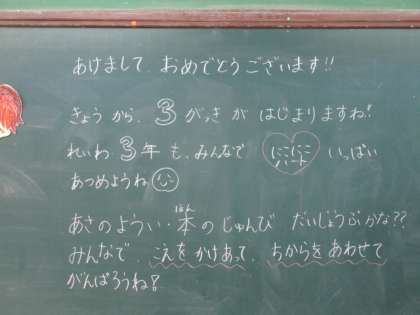 あけまして、おめでとうございます!!
きょうから、3がっきがはじまりますね!
れいわ3年も、みんなでにこにこハートいっぱい
あつめようね
あさのようい・・本のじゅんびだいじょうぶかな??
ほん
みんなで、こえをかけあって、ちからをあわせて
がんばろうね!